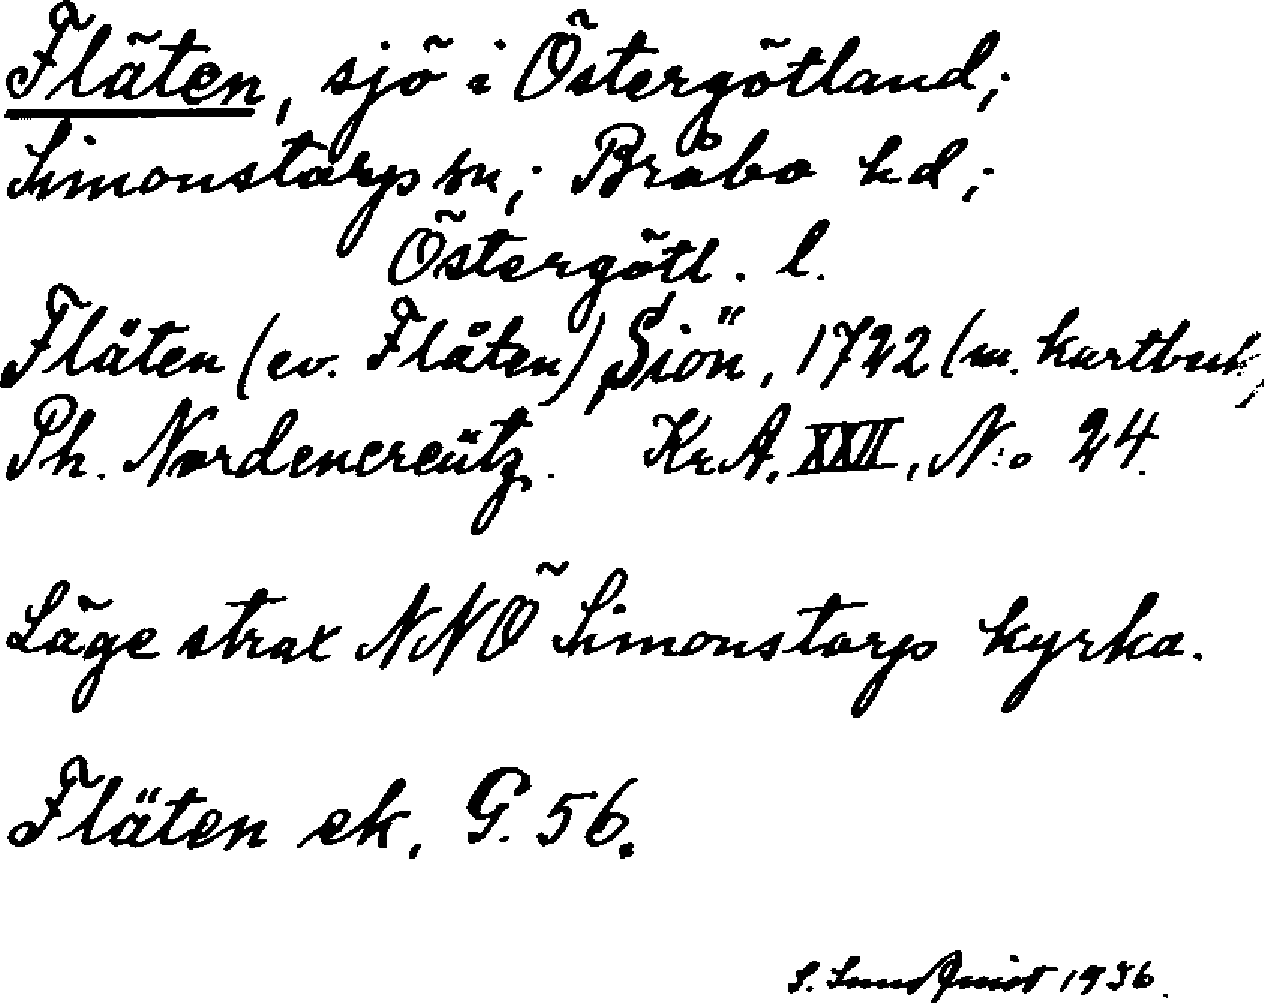 Fläten, sjö i Östergötland;
Simonstorps sn; Bråbo hd;
Östergötl. l.
Fläten (ev. Flåten) Siön, 1722 (m. kartbuk,
Ph. Nordencreütz. Kr.A. XXII, N:o 24.
Läge strax NNÖ Simonstorps kyrka.
Fläten ek. G. 56.
S. Sundquist 1936.